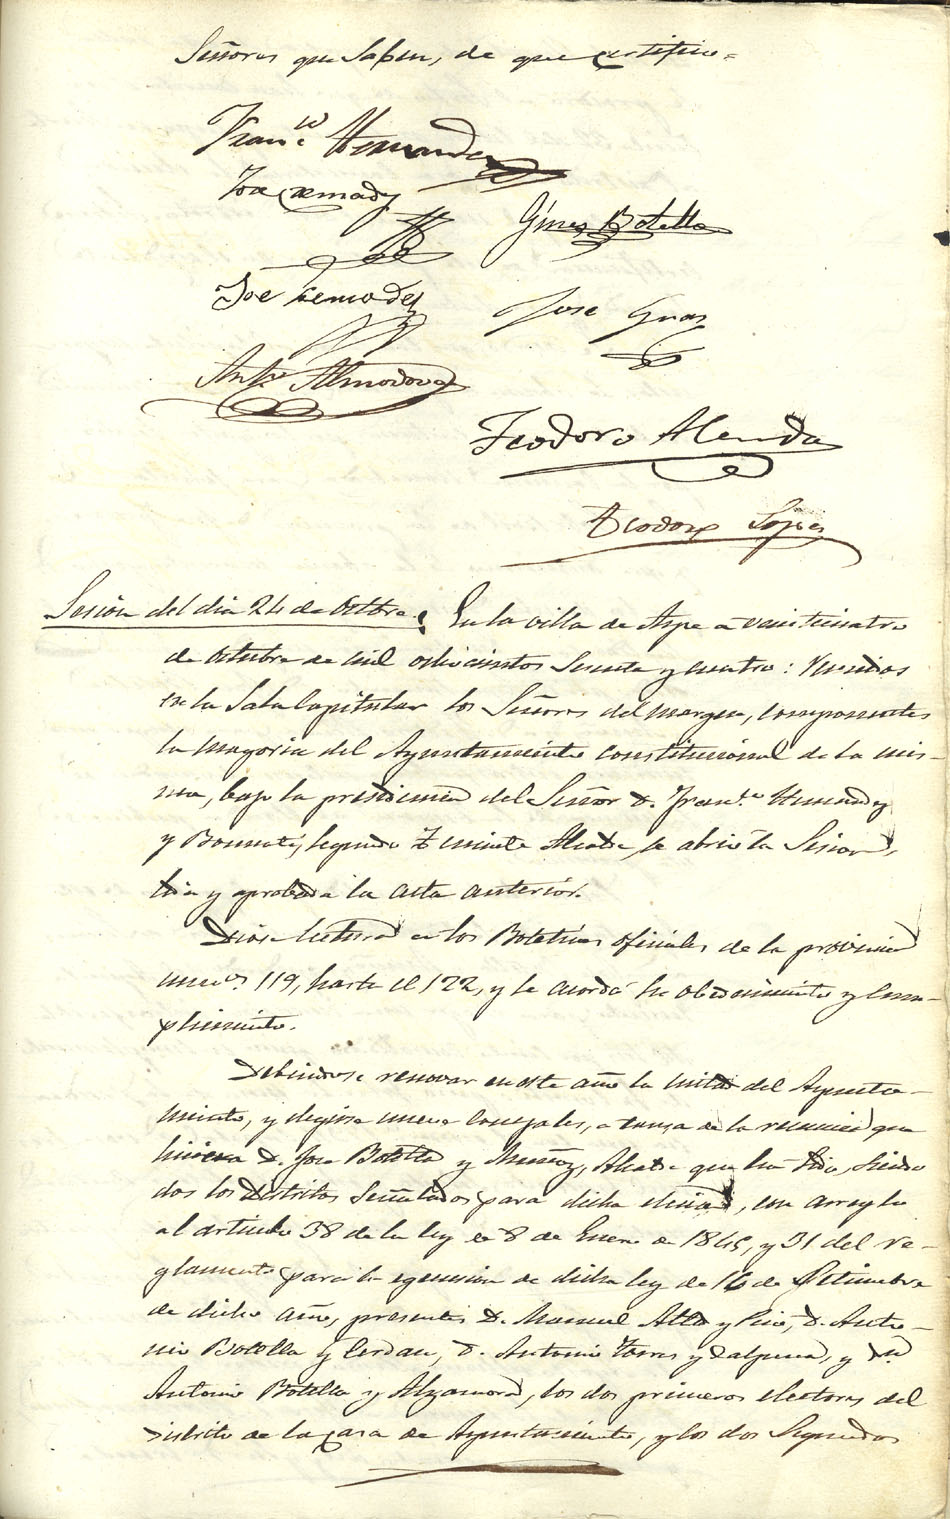 Señores que saben, de que certifico =
Fran.co Hernandez
Jose Cremades
Gines Botella
Jose Cremades
Jose Gras
Ant.o Almodovar
Teodoro Alenda
Teodoro Lopez
Sesion del dia 24 de Octbre. En la villa de Aspe a veinticuatro
de Octubre de mil ochocientos sesenta y cuatro: Reunidos
en la Sala Capitular los Señores del margen, componentes
la mayoria del Ayuntamiento constitucional de la mis-
ma, bajo la presidencia del Señor D. Fran.co Hernandez
y Bonmati, segundo Teniente Alcalde, se abrio la Sesion,
leida y aprobada la acta anterior.
Diose lectura a los Boletines oficiales de la provincia
numos. 119, hasta el 122, y se acordó su obedecimiento y cum-
plimiento.
Debiendose renovar en este año la mitad del Ayunta-
miento, y elegirse nueve concejales, a causa de la renuncia que
hiciera D. Jose Botella y Muñoz, Alcalde que ha sido, siendo
dos los Distritos señalados para dicha eleccion, con arreglo
al articulo 38 de la ley de 8 de Enero de 1845, y 31 del re-
glamento para la egecucion de dicha ley de 16 de Setiembre
de dicho año, presentes D. Manuel Alto y Pico, D. Anto-
nio Botella y Cerdan, D. Antonio Torres y Galpena, y Dn.
Antonio Botella y Alzamora, los dos primeros electores del
distrito de la casa de Ayuntamiento, y los dos segundos